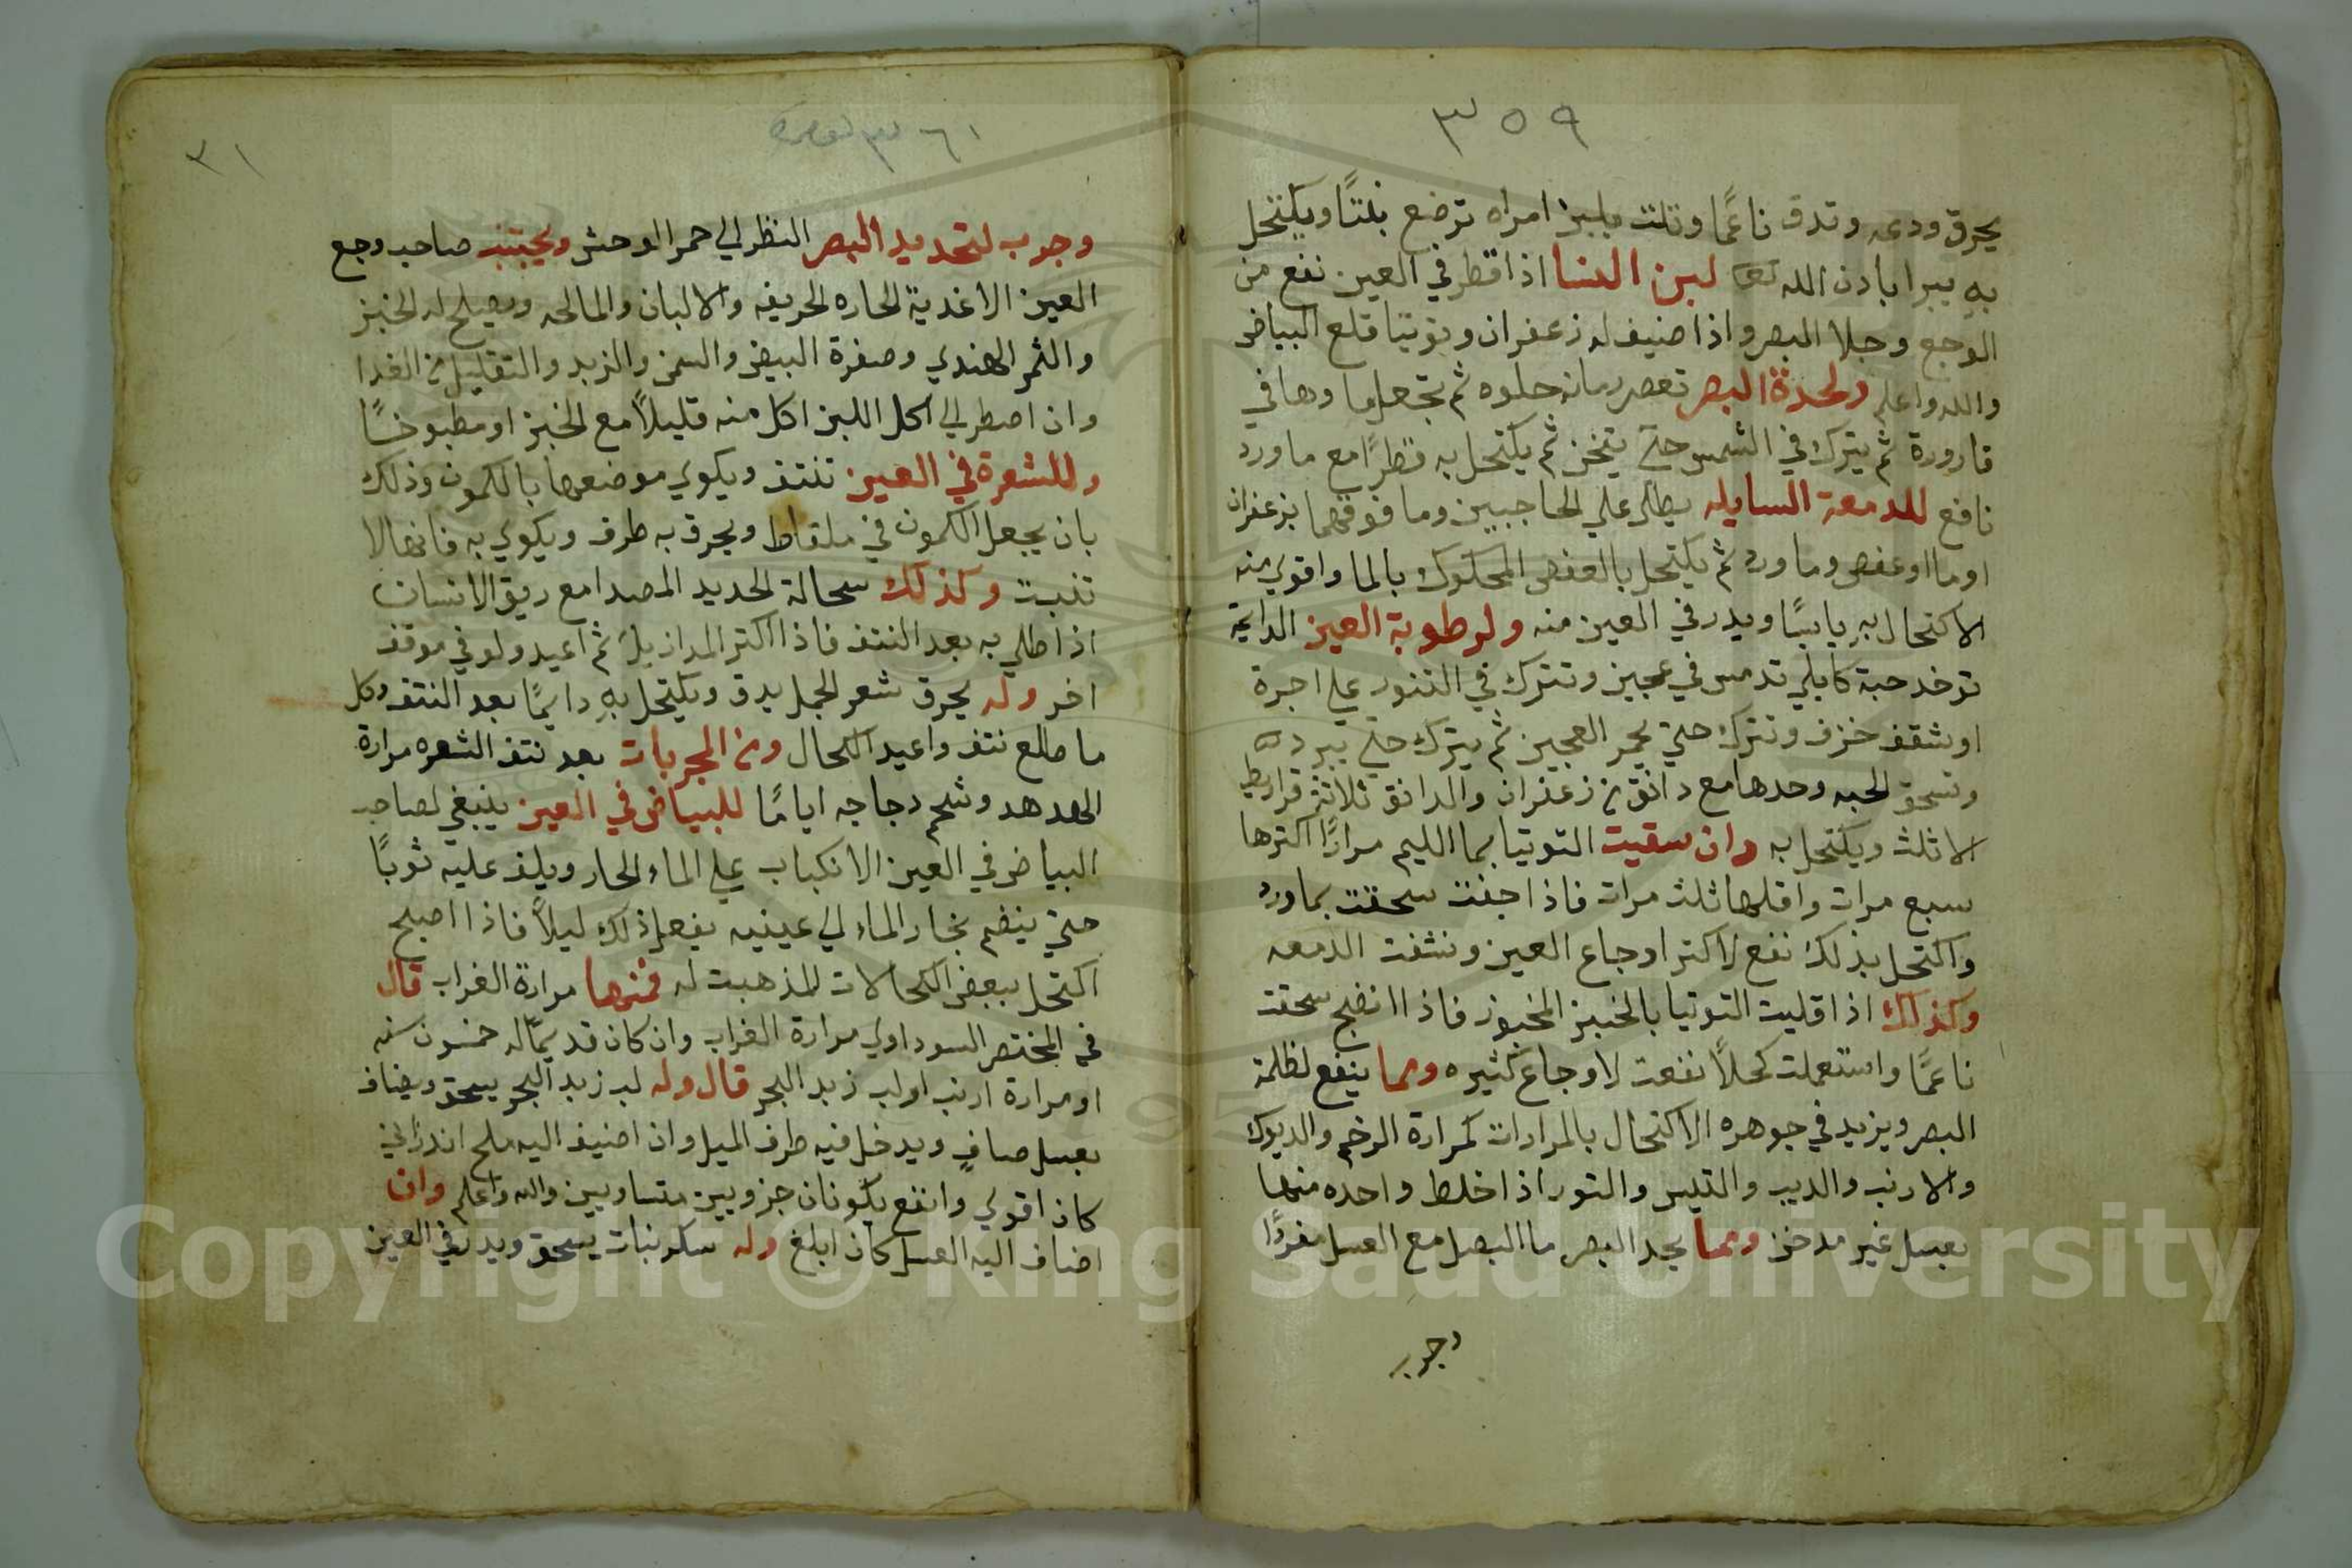 ٣٥٩
يحرق ودعه وتدق ناعمًا وتلت بلبن امراه ترضع بنتًا ويكتحل
به يبرا باذن الله تعا لبن النسا اذا قطر في العين نفع من
الوجع وجلا البصر واذا ضيف له زعفران وتوتيا قلع البياض
والله واعلم ولحدة البصر تعصر رمانه حلوه ثم تجعل ما وها في
قارورة ثم يترك في الشمس حتي يتخن ثم يكتحل به قطرًا مع ما ورد
نافع للدمعة السايله يطلي علي الحاجبين وما فوقهما بزعفران
او ما او عفص وما ورد ثم يكتحل بالعفص المحكوك بالما واقوي منه
الاكتحال به يابسًا ويدر في العين منه ولرطوبة العين الدايمة
توخد حبة كابلي تدمس في عجين وتترك في التنور علي اجرة
او شقف خزف وتترك حتي يحمر العجين ثم يترك حتي يبرد
وتسحق الحبه وحدها مع دانق من زعفران والدانق ثلاثة قراريط
الا ثلث ويكتحل به وان سقيت التوتيا بما الليم مرارًا اكترها
سبع مرات واقلها ثلث مرات فاذا جفت سحقت بماورد
واكتحل بذلك نفع لاكتر اوجاع العين ونشفت الدمعه
وكذلك اذا قليت التوتيا بالخبز المخبوز فاذا انضج سحقت
ناعمًا واستعملت كحلاً نفعت لاوجاع كثيره ومما ينفع لظلمة
البصر ويزيد في جوهره الاكتحال بالمرارات كمرارة الرخم والديوك
والارنب والديب والتيس والتور اذا خلط واحده منها
بعسل غير مدخن ومما يحد البصر ما البصل مع العسل مفردًا
وجرب
٣٦١
٣١
وجرب لتحديد البصر النظر الي حمر الوحش ويجتنب صاحب وجع
العين الاغدية الحاره الحريفه والالبان والمالحه ويصلح له الخبز
والثمر الهندي وصفرة البيض والسمن والزبد والتقليل من الغدا
وان اضطر الي اكل اللبن اكل منه قليلاً مع الخبز او مطبوخًا
وللشعرة في العين تنتف ويكوي موضعها بالكمون وذلك
بان يجعل الكمون في ملقاط ويحرق به طرف ويكوي به فانها لا
تنبت وكذلك سحالة الحديد المصدا مع ريق الانسان
اذا طلي به بعد النتف فاذا اكتر المداد يزيل ثم اعيد ولو في موقف
اخر وله يحرق شعر الجمل يدق ويكتحل به دايمًا بعد النتف وكل
ما طلع نتف واعيد الكحال ومن المجربات بعد نتف الشعره مرارة
الهدهد وشحم دجاجه ايامًا للبياض في العين ينبغي لصاحب
البياض في العين الانكباب علي الماء الحار ويلف عليه ثوبًا
حتي ينضم بخار الماء الي عينيه يفعل ذلك ليلاً فاذا اصبح
اكتحل ببعض الكحالات المذهبت له فمنها مرارة الغراب قال
في المختصر السوداوي مرارة الغراب وان كان قديمًا له خمسون سنه
او مرارة ارنب اولب زبد البحر قال وله لب زبد البحر يسحق ويضاف
بعسل صافٍ ويدخل فيه طرف الميل وان اضيف اليه ملح اندراني
كان اقوي وانفع يكونان جزويين متساويين والله واعلم وان
اضاف اليه العسل كان ابلغ وله سكر بنات يسحق ويدر في العين
Copyright © King Saud University